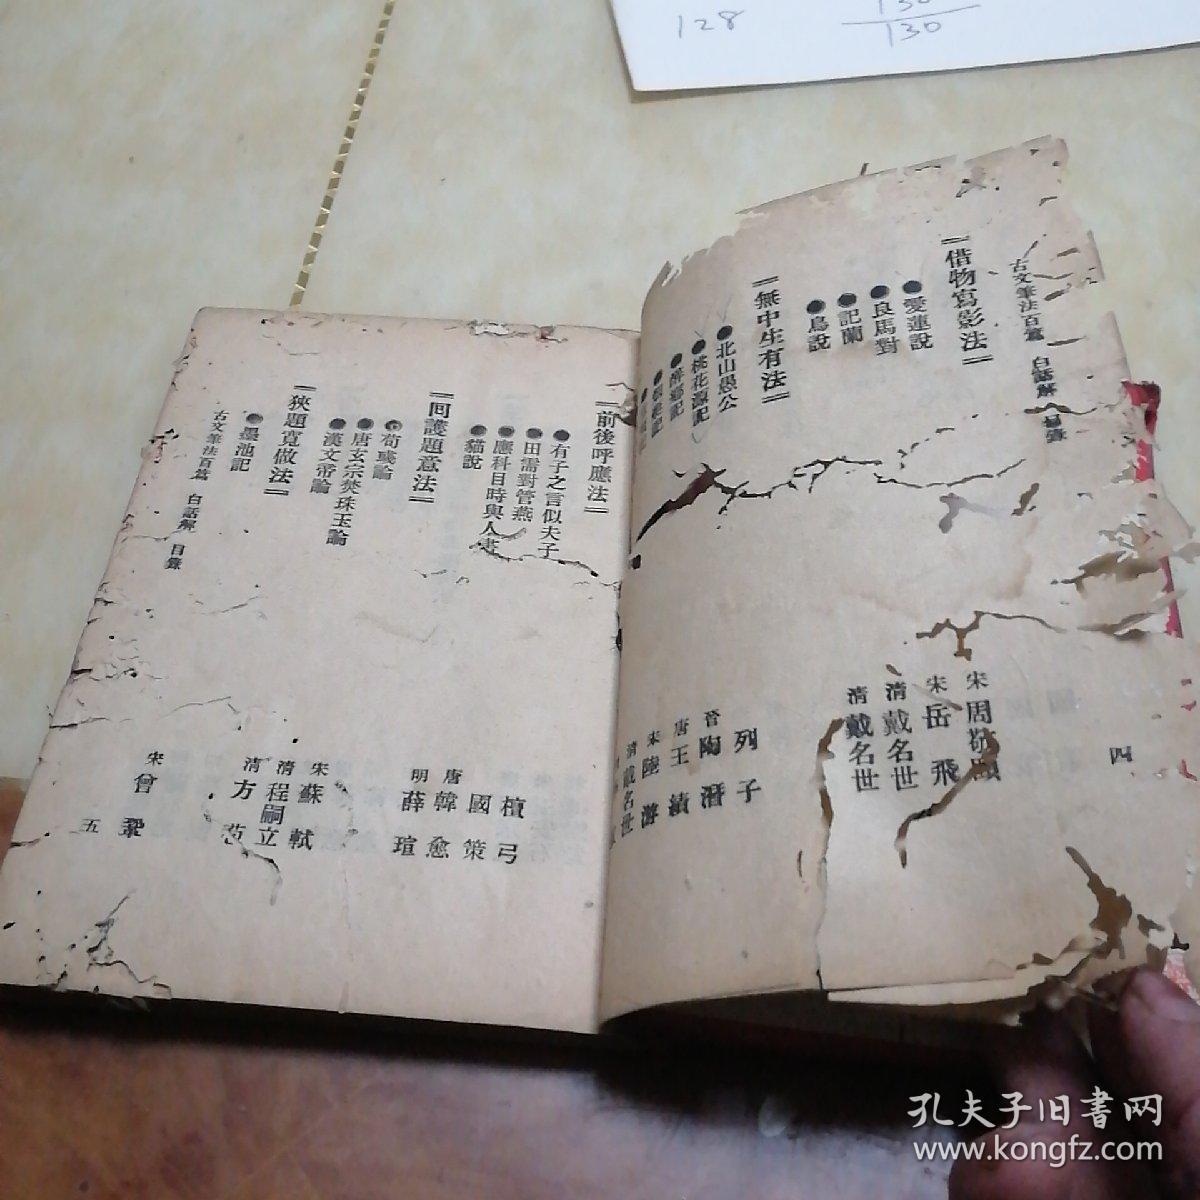 128
130
130
古文筆法百篇 白話解 目錄
四
借物寫影法
●愛蓮說 宋 周敦頤
●良馬對 宋 岳飛
●記蘭 清 戴名世
●鳥說 清 戴名世
無中生有法
●北山愚公 列子
●桃花源記 晉 陶潛
●醉鄉記 唐 王績
宋 陸游
清 戴名世
前後呼應法
●有子之言似夫子 檀弓
●田需對管燕 國策
●應科目時與人書 唐 韓愈
●貓說 明 薛瑄
回護題意法
●荀彧論 宋 蘇軾
●唐玄宗焚珠玉論 清 程嗣立
●漢文帝論 清 方苞
狹題寬做法
●墨池記 宋 曾鞏
古文筆法百篇 白話解 目錄
五
孔夫子旧書网
www.kongfz.com